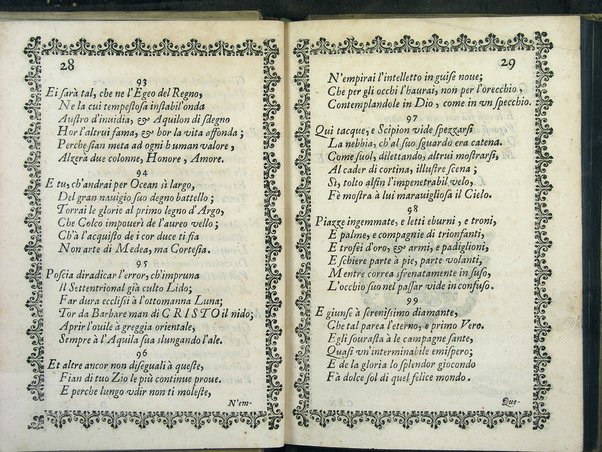 28
93
Ei sarà tal, che ne l'Egeo del Regno,
Ne la cui tempestosa instabil'onda
Austro d'inuidia, & Aquilon di sdegno
Hor l'altrui fama, & hor la vita affonda;
Perche sian meta ad ogni human valore,
Alzerà due colonne, Honore, Amore.
94
E tu, ch'andrai per Ocean sì largo,
Del gran nauigio suo degno battello;
Torrai le glorie al primo legno d'Argo,
Che Colco impouerì de l'aureo vello;
Ch'à l'acquisto de i cor duce ti fia
Non arte di Medea, ma Cortesia.
95
Poscia diradicar l'error, ch'impruna
Il Settentrional già culto Lido;
Far dura ecclissi à l'ottomanna Luna;
Tor da Barbare man di CRISTO il nido;
Aprir l'ouile à greggia orientale,
Sempre à l'Aquila sua slungando l'ale.
96
Et altre ancor non diseguali à queste,
Fian di tuo Zio le più continue proue.
E perche lungo vdir non ti moleste,
N'em-
29
N'empirai l'intelletto in guise noue;
Che per gli occhi l'haurai, non per l'orecchio,
Contemplandole in Dio, come in vn specchio.
97
Qui tacque, e Scipion vide spezzarsi
La nebbia, ch'al suo sguardo era catena.
Come suol, dilettando, altrui mostrarsi,
Al cader di cortina, illustre scena;
Sì, tolto alfin l'impenetrabil velo,
Fè mostra à lui marauigliosa il Cielo.
98
Piazze ingemmate, e letti eburni, e troni,
E palme, e compagnie di trionfanti,
E trofei d'oro, & armi, e padiglioni,
E schiere parte à piè, parte volanti,
Mentre correa sfrenatamente in suso,
L'occhio suo nel passar vide in confuso.
99
E giunse à serenissimo diamante,
Che tal parea l'eterno, e primo Vero.
Egli sourasta à le campagne sante,
Quasi vn'interminabile emispero;
E de la gloria lo splendor giocondo
Fà dolce sol di quel felice mondo.
Que-